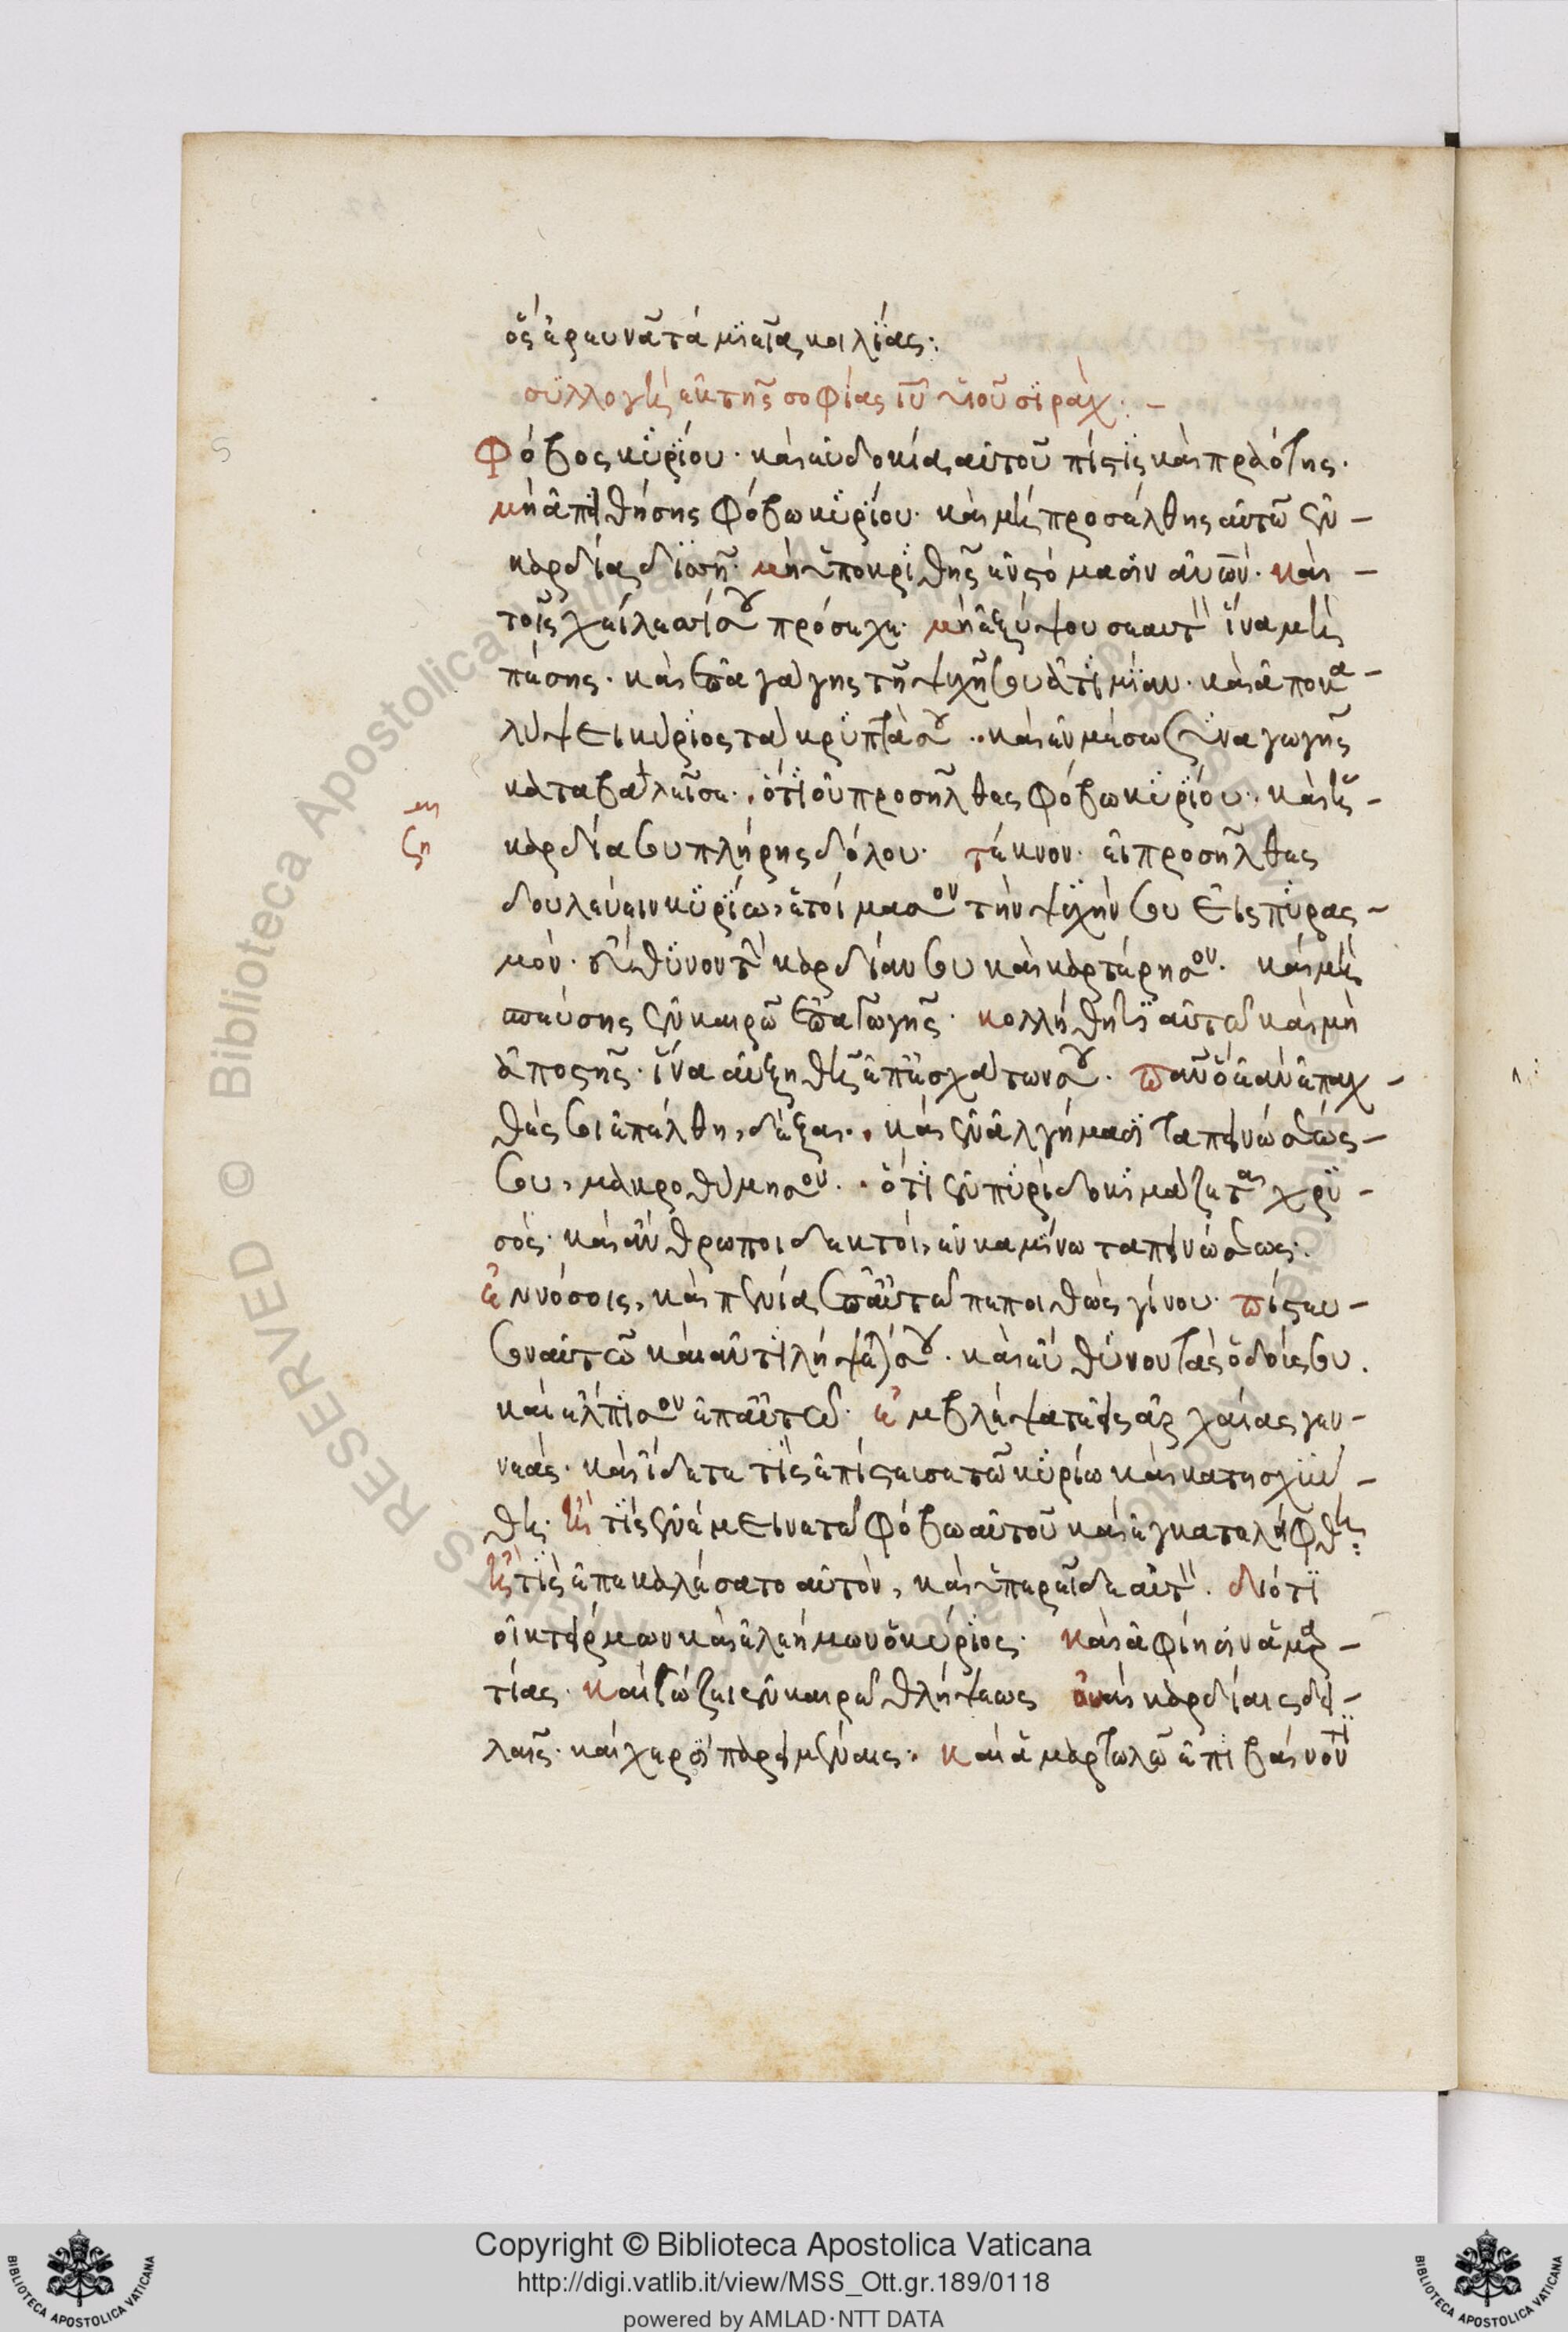 ὃς ἐρευνᾶ ταμιεῖα κοιλίας:
συλλογὴ ἐκ τῆς σοφίας ιυ υἱοῦ σιράχ. –
Φόβος κυρίου· καὶ εὐδοκία αὐτοῦ πίστις καὶ πραότης·
μὴ ἀπειθήσης φόβω κυρίου· καὶ μὴ προσέλθης αὐτῶ ἐν –
καρδία δισσῆ· μὴ ὑποκριθῆς ἐν στόμασιν ἀνων· καὶ –
τοῖς χείλεσί σου πρόσεχε· μὴ ἐξύψου σεαυτὸν ἵνα μὴ
πέσης· καὶ ἐπαγάγης τῆ ψυχῆ σου ἀτιμίαν· καὶ ἀποκα –
λύψει κύριος τὰ κρυπτά σου .. καὶ ἐν μέσω συναγωγῆς
καταβαλεῖ σε. . ὅτι οὐ προσῆλθες φόβω κυρίου· καὶ ἡ –
καρδία σου πλήρης δόλου· τέκνον· εἰ προσῆλθες
δουλεύειν κυρίω, ἑτοίμασον τὴν ψυχήν σου εἰς πειρας –
μόν· εὔθυνον τὴν καρδίαν σου καὶ καρτέρησον· καὶ μὴ
σπεύσης ἐν καιρῶ ἐπαγωγῆς· κολλήθητι αὐτῶ καὶ μὴ
ἀποστῆς· ἵνα αὐξηθῆς ἐπ' ἐσχάτων σου· πᾶν ὃ ἐὰν ἐπαχ –
θές σοι ἐπέλθη, δέξαι. . καὶ ἐν ἀλγήμασι ταπεινώσεώς –
σου, μακροθύμησον. . ὅτι ἐν πυρὶ δοκιμάζεται χρυ –
σός· καὶ ἄνθρωποι δεκτοί, ἐν καμίνω ταπεινώσεως·
ἐν νόσοις, καὶ πενία ἐπ' αὐτῶ πεποιθὼς γίνου· πίστευ –
σον αὐτῶ καὶ ἀντιλήψεταί σου· καὶ εὔθυνον τὰς ὁδούς σου.
καὶ ἔλπισον ἐπ' αὐτῶ· ἐμβλέψατε εἰς ἀρχαίας γεν –
νεάς· καὶ ἴδετε τίς ἐπίστευσε τῶ κυρίω καὶ κατησχύν –
θη· ἢ τίς ἐνέμεινε τῶ φόβω αὐτοῦ καὶ ἐγκατελείφθη:
ἢ τίς ἐπεκαλέσατο αὐτόν, καὶ ὑπερεῖδεν αὐτόν. διότι
οἰκτείρμων καὶ ἐλεήμων ὁ κύριος· καὶ ἀφίησιν ἁμαρ –
τίας· καὶ σώζει ἐν καιρῶ θλίψεως οὐαὶ καρδίαις δει –
λαῖς· καὶ χερσὶ παρειμέναις· καὶ ἁμαρτωλῶ ἐπιβαίνοντι
Copyright © Biblioteca Apostolica Vaticana
http://digi.vatlib.it/view/MSS_Ott.gr.189/0118
powered by AMLAD·NTT DATA